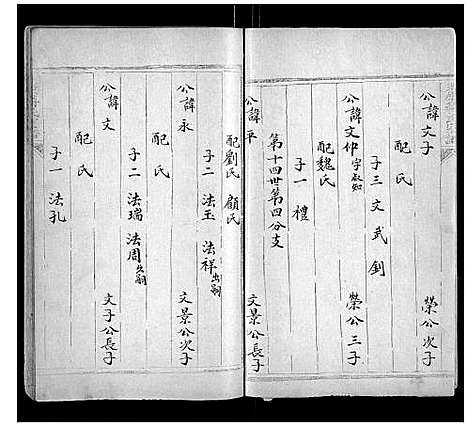 公諱文子 榮公次子
配氏
子三 文 武 劍
公諱文作 字 榮公三子
配魏氏
子一 禮
第十四世第四分支
公諱平 文景公長子
配劉氏 顧氏
子二 法玉 法祥出嗣
公諱永 文景公次子
配氏
子二 法瑞 法周出嗣
公諱文 文子公長子
配氏
子一 法孔